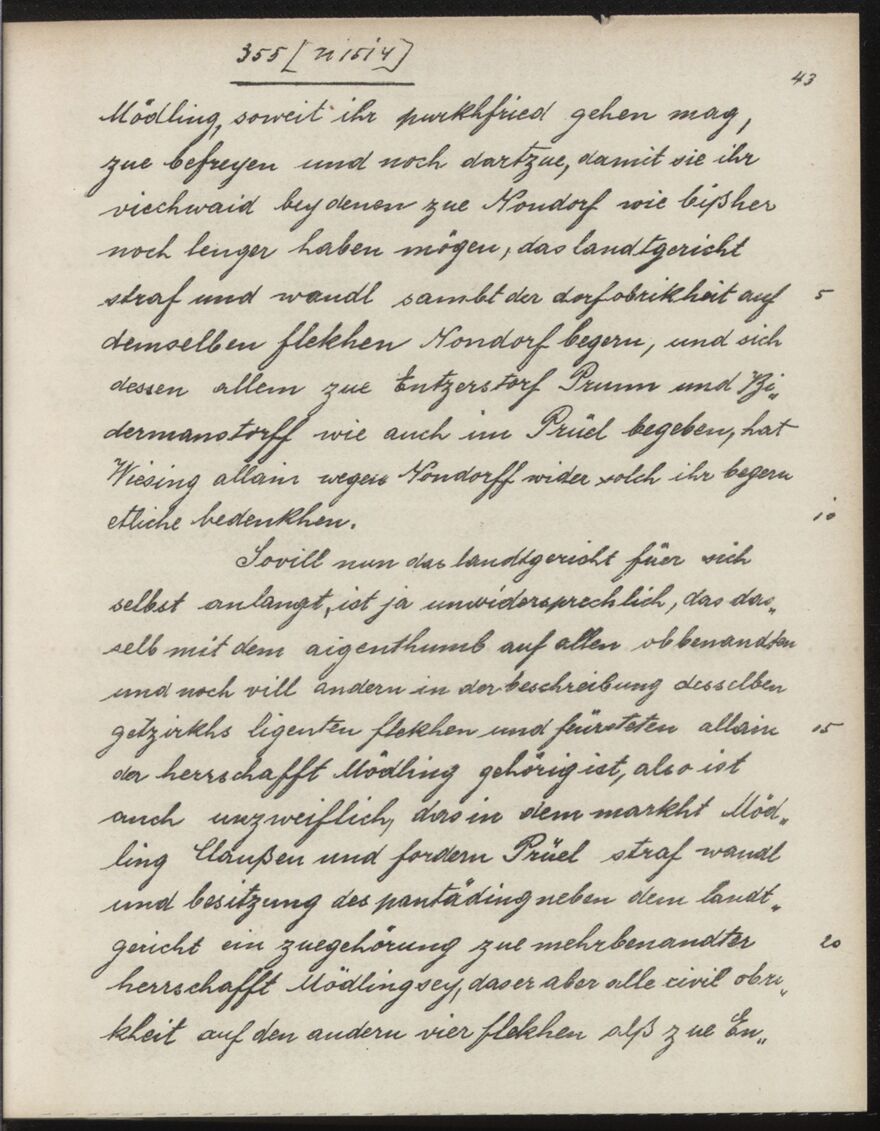 355 [N 1514]
43
Mödling, soweit ihr purkhfried gehen mag,
zue befreyen und noch dartzue, damit sie ihr
viechwaid bey denen zue Nondorf wie bißher
noch lenger haben mögen, das landtgericht
straf und wandl sambt der dorfobrikheit auf 5
demselben flekhen Nondorf begern, und sich
dessen allem zue Entzerstorf Prunn und Bi„
dermanstorff wie auch im Prüel begeben, hat
Wiesing allain wegen Nondorff wider solch ihr begern
etliche bedenkhen. 10
Sovill nun das landtgericht füer sich
selbst anlangt, ist ja unwidersprechlich, das das„
selb mit dem aigenthumb auf allen obbenandten
und noch vill andern in der beschreibung desselben
getzirkhs ligenten flekhen und feürsteten allain 15
der herrschafft Mödling gehörig ist, also ist
auch unzweiflich, das in dem markht Möd„
ling Claußen und fordern Prüel straf wandl
und besitzung des pantäding neben dem landt„
gericht ein zuegehörung zue mehrbenandter 20
herrschafft Mödling sey, das er aber alle civil obri„
kheit auf den andern vier flekhen alß zue En„